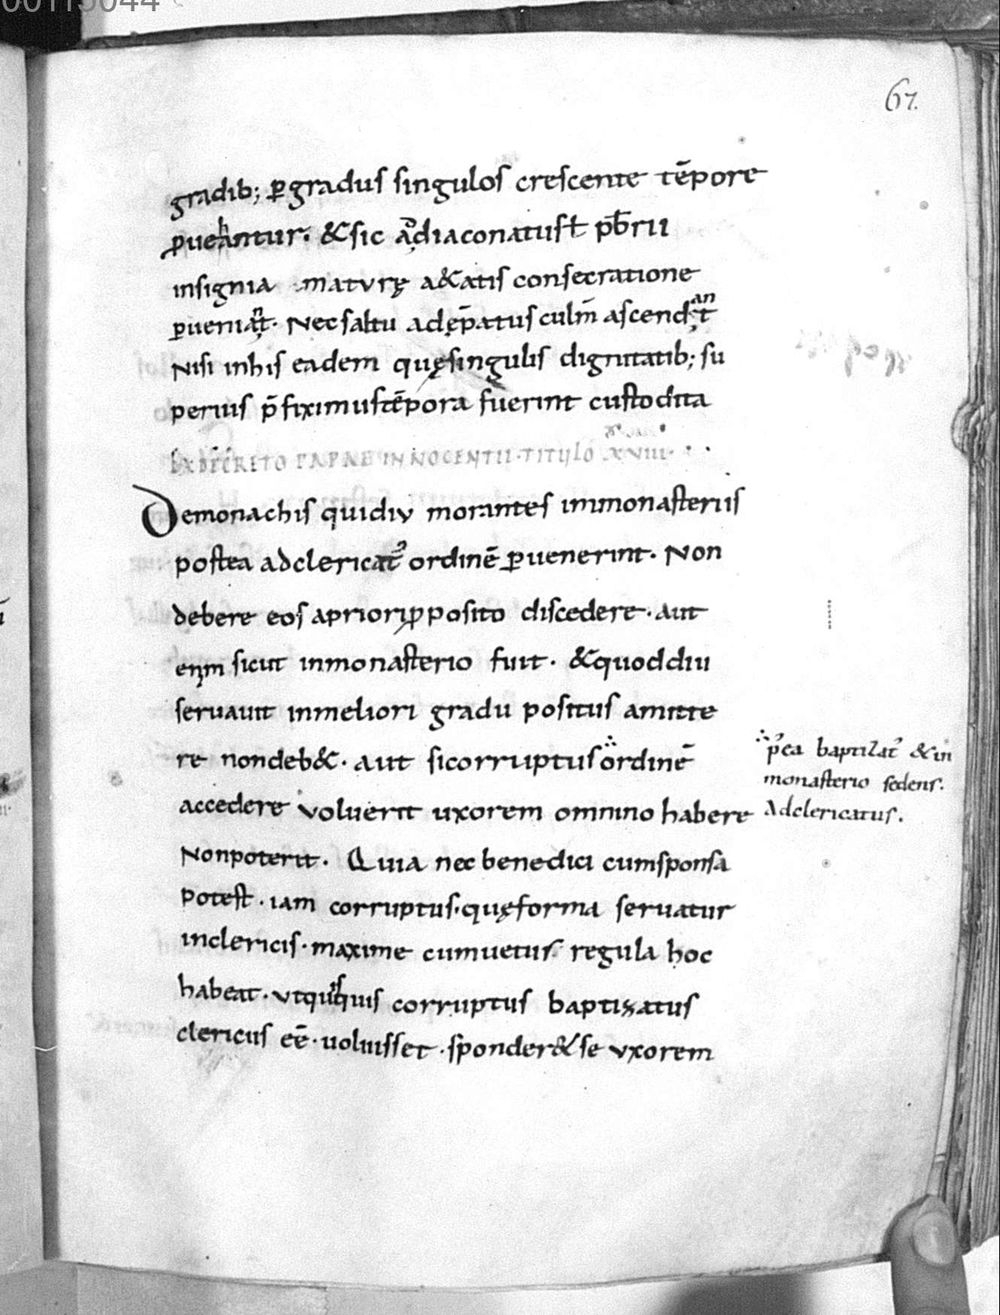 00115044
67.
gradib; ꝑ gradus singulos crescente tēpore
ꝑuehantur. & sic ad diaconatus ł pƀrii
insignia maturę a&atis consecratione
ꝑueniant. Nec saltu ad ep̄atus culm̄ ascendant
Nisi in his eadem quę singulis dignitatib; su
perius p̄fiximus tēpora fuerint custodita
EX DECRETO PAPAE INNOCENTII. TITULO XVIII.
De monachis qui diu morantes in monasteriis
postea ad clericat' ordinē ꝑuenerint. Non
debere eos a priori ꝓposito discedere. aut
enim sicut in monasterio fuit. & quod diu
seruauit in meliori gradu positus amitte
re non deb&. aut si corruptus ordinē
p'ea baptizat' & in
monasterio sedens.
Ad clericatus.
accedere voluerit uxorem omnino habere
Non poterit. Quia nec benedici cum sponsa
potest. iam corruptus. quę forma seruatur
in clericis. maxime cum uetus regula hoc
habeat. vt quisquis corruptus baptizatus
clericus eē. uoluisset. sponder& se vxorem